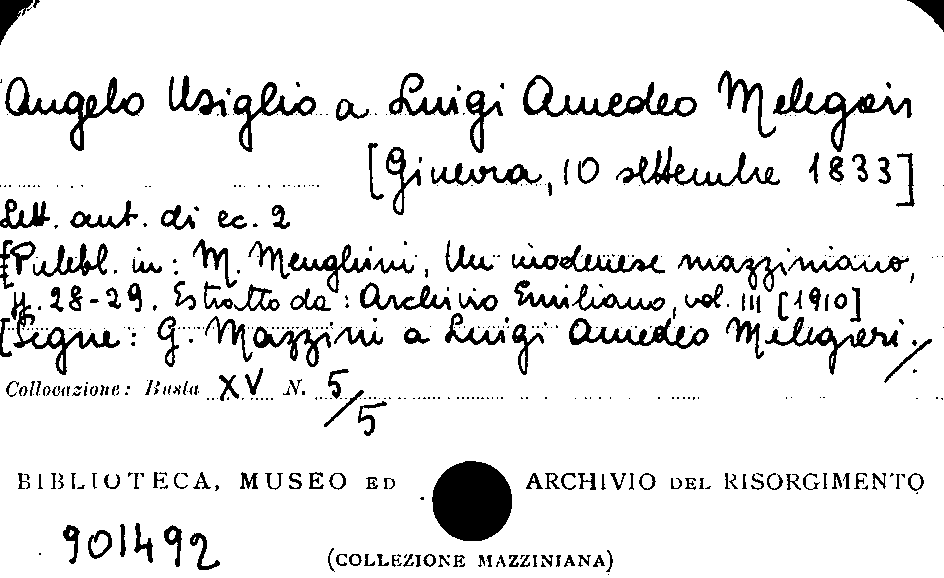 Angelo Usiglio a Luigi Amedeo Melegari
[Ginevra, 10 settembre 1833]
Lett. aut. di cc. 2
[Pubbl. in: M. Menghini, Un modenese mazziniano,
pp. 28-29. Estratto da: Archivio Emiliano, vol. III [1910]
[Segue: G. Mazzini a Luigi Amedeo Melegari./.
Collocazione: Busta XV N. 5/5
BIBLIOTECA, MUSEO ED ARCHIVIO DEL RISORGIMENTO
901492
(COLLEZIONE MAZZINIANA)